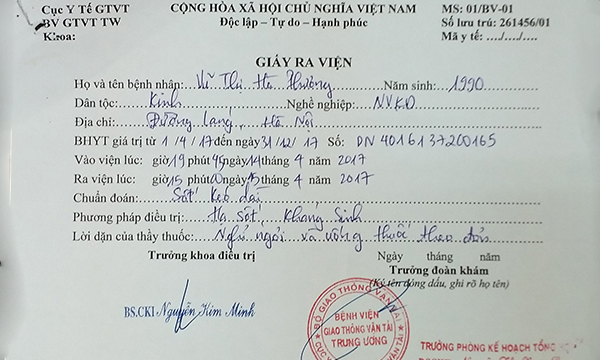 Cục Y Tế GTVT CỘNG HÒA XÃ HỘI CHỦ NGHĨA VIỆT NAM MS: 01/BV-01
BV GTVT TW Độc lập - Tự do - Hạnh phúc Số lưu trú: 261456/01
Khoa: Mã y tế:..../..../....
GIẤY RA VIỆN
Họ và tên bệnh nhân: Vũ Thị Hà Phương Năm sinh: 1990
Dân tộc: Kinh Nghề nghiệp: NVKD
Địa chỉ: Đường Láng, Hà Nội
BHYT giá trị từ 1/4/17 đến ngày 31/12/17 Số: DN 4016137200165
Vào viện lúc: giờ 19 phút 45 ngày 14 tháng 4 năm 2017
Ra viện lúc: giờ 15 phút 00 ngày 15 tháng 4 năm 2017
Chuẩn đoán: Sốt kéo dài
Phương pháp điều trị: Hạ sốt, Kháng Sinh
Lời dặn của thầy thuốc: Nghỉ ngơi và uống thuốc theo đơn
Trưởng khoa điều trị Ngày tháng năm
Trưởng đoàn khám
(Ký tên đóng dấu, ghi rõ họ tên)
BS.CKI Nguyễn Kim Minh
BỘ GIAO THÔNG VẬN TẢI
BỆNH VIỆN
GIAO THÔNG VẬN TẢI
TRUNG ƯƠNG
TRƯỞNG PHÒNG KẾ HOẠCH TỔNG